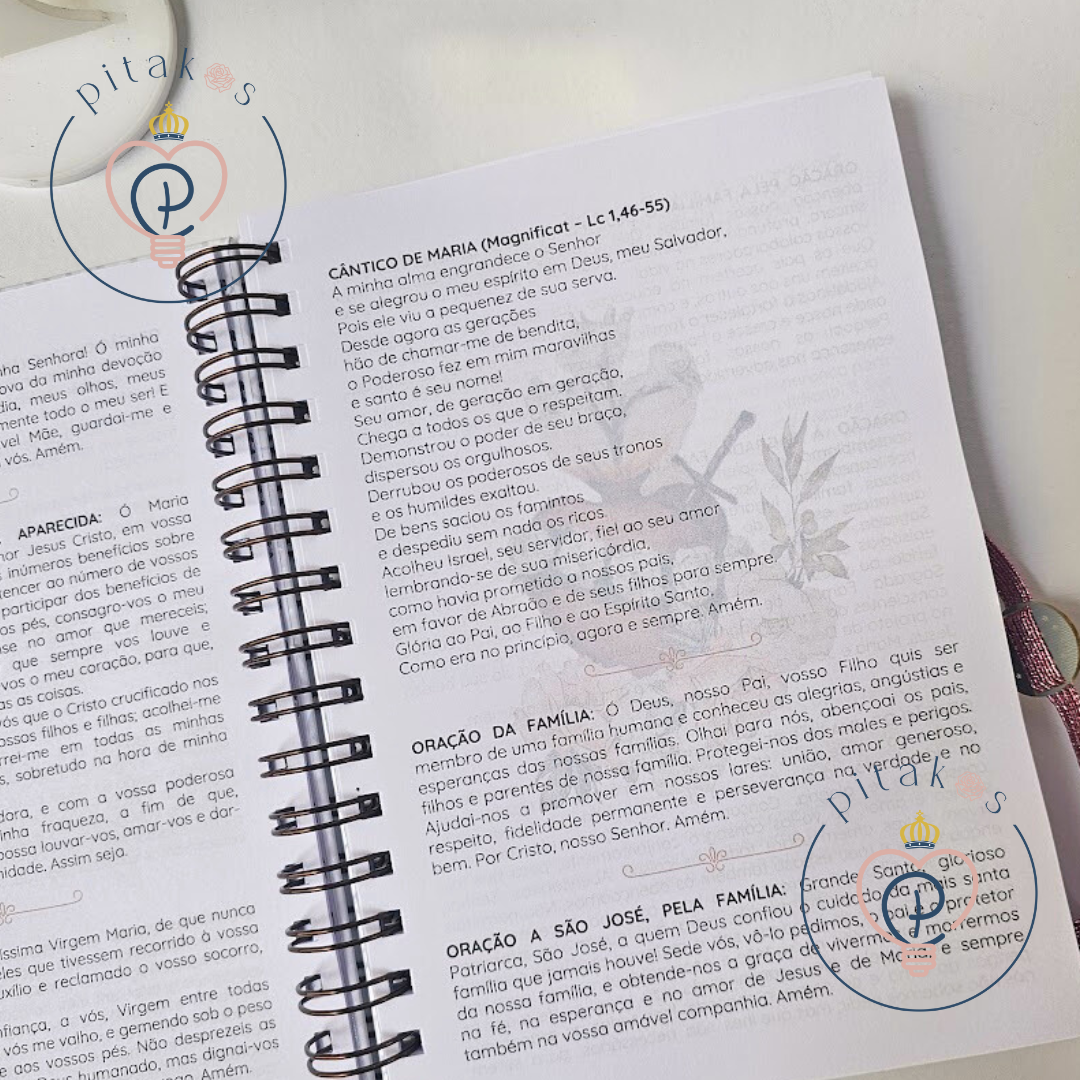 pitakos
P
nha Senhora! Ó minha
ova da minha devoção
dia, meus olhos, meus
mente todo o meu ser! E
vel Mãe, guardai-me e
vós. Amém.
APARECIDA: Ó Maria
nor Jesus Cristo, em vossa
inúmeros benefícios sobre
tencer ao número de vossos
participar dos benefícios de
os pés, consagro-vos o meu
se no amor que mereceis;
que sempre vos louve e
vos o meu coração, para que,
as as coisas.
vós que o Cristo crucificado nos
ossos filhos e filhas; acolhei-me
rrei-me em todas as minhas
s, sobretudo na hora de minha
dora, e com a vossa poderosa
inha fraqueza, a fim de que,
possa louvar-vos, amar-vos e dar-
nidade. Assim seja.
íssima Virgem Maria, de que nunca
eles que tivessem recorrido à vossa
uxílio e reclamado o vosso socorro,
nfiança, a vós, Virgem entre todas
vós me valho, e gemendo sob o peso
e aos vossos pés. Não desprezeis as
humanado, mas dignai-vos
Amém.
CÂNTICO DE MARIA (Magnificat – Lc 1,46-55)
A minha alma engrandece o Senhor
e se alegrou o meu espírito em Deus, meu Salvador,
Pois ele viu a pequenez de sua serva.
Desde agora as gerações
hão de chamar-me de bendita,
o Poderoso fez em mim maravilhas
e santo é seu nome!
Seu amor, de geração em geração,
Chega a todos os que o respeitam.
Demonstrou o poder de seu braço,
dispersou os orgulhosos.
Derrubou os poderosos de seus tronos
e os humildes exaltou.
De bens saciou os famintos
e despediu sem nada os ricos.
Acolheu Israel, seu servidor, fiel ao seu amor
lembrando-se de sua misericórdia,
como havia prometido a nossos pais,
em favor de Abraão e de seus filhos para sempre.
Glória ao Pai, ao Filho e ao Espírito Santo,
Como era no princípio, agora e sempre. Amém.
ORAÇÃO DA FAMÍLIA: Ó Deus, nosso Pai, vosso Filho quis ser
membro de uma família humana e conheceu as alegrias, angústias e
esperanças das nossas famílias. Olhai para nós, abençoai os pais,
filhos e parentes de nossa família. Protegei-nos dos males e perigos.
Ajudai-nos a promover em nossos lares: união, amor generoso,
respeito, fidelidade permanente e perseverança na verdade e no
bem. Por Cristo, nosso Senhor. Amém.
ORAÇÃO A SÃO JOSÉ, PELA FAMÍLIA: Grande Santo, glorioso
Patriarca, São José, a quem Deus confiou o cuidado da mais santa
família que jamais houve! Sede vós, vô-lo pedimos, o pai e o protetor
da nossa família, e obtende-nos a graça de vivermos e morrermos
na fé, na esperança e no amor de Jesus e de Maria, e sempre
também na vossa amável companhia. Amém.
pitakos
P